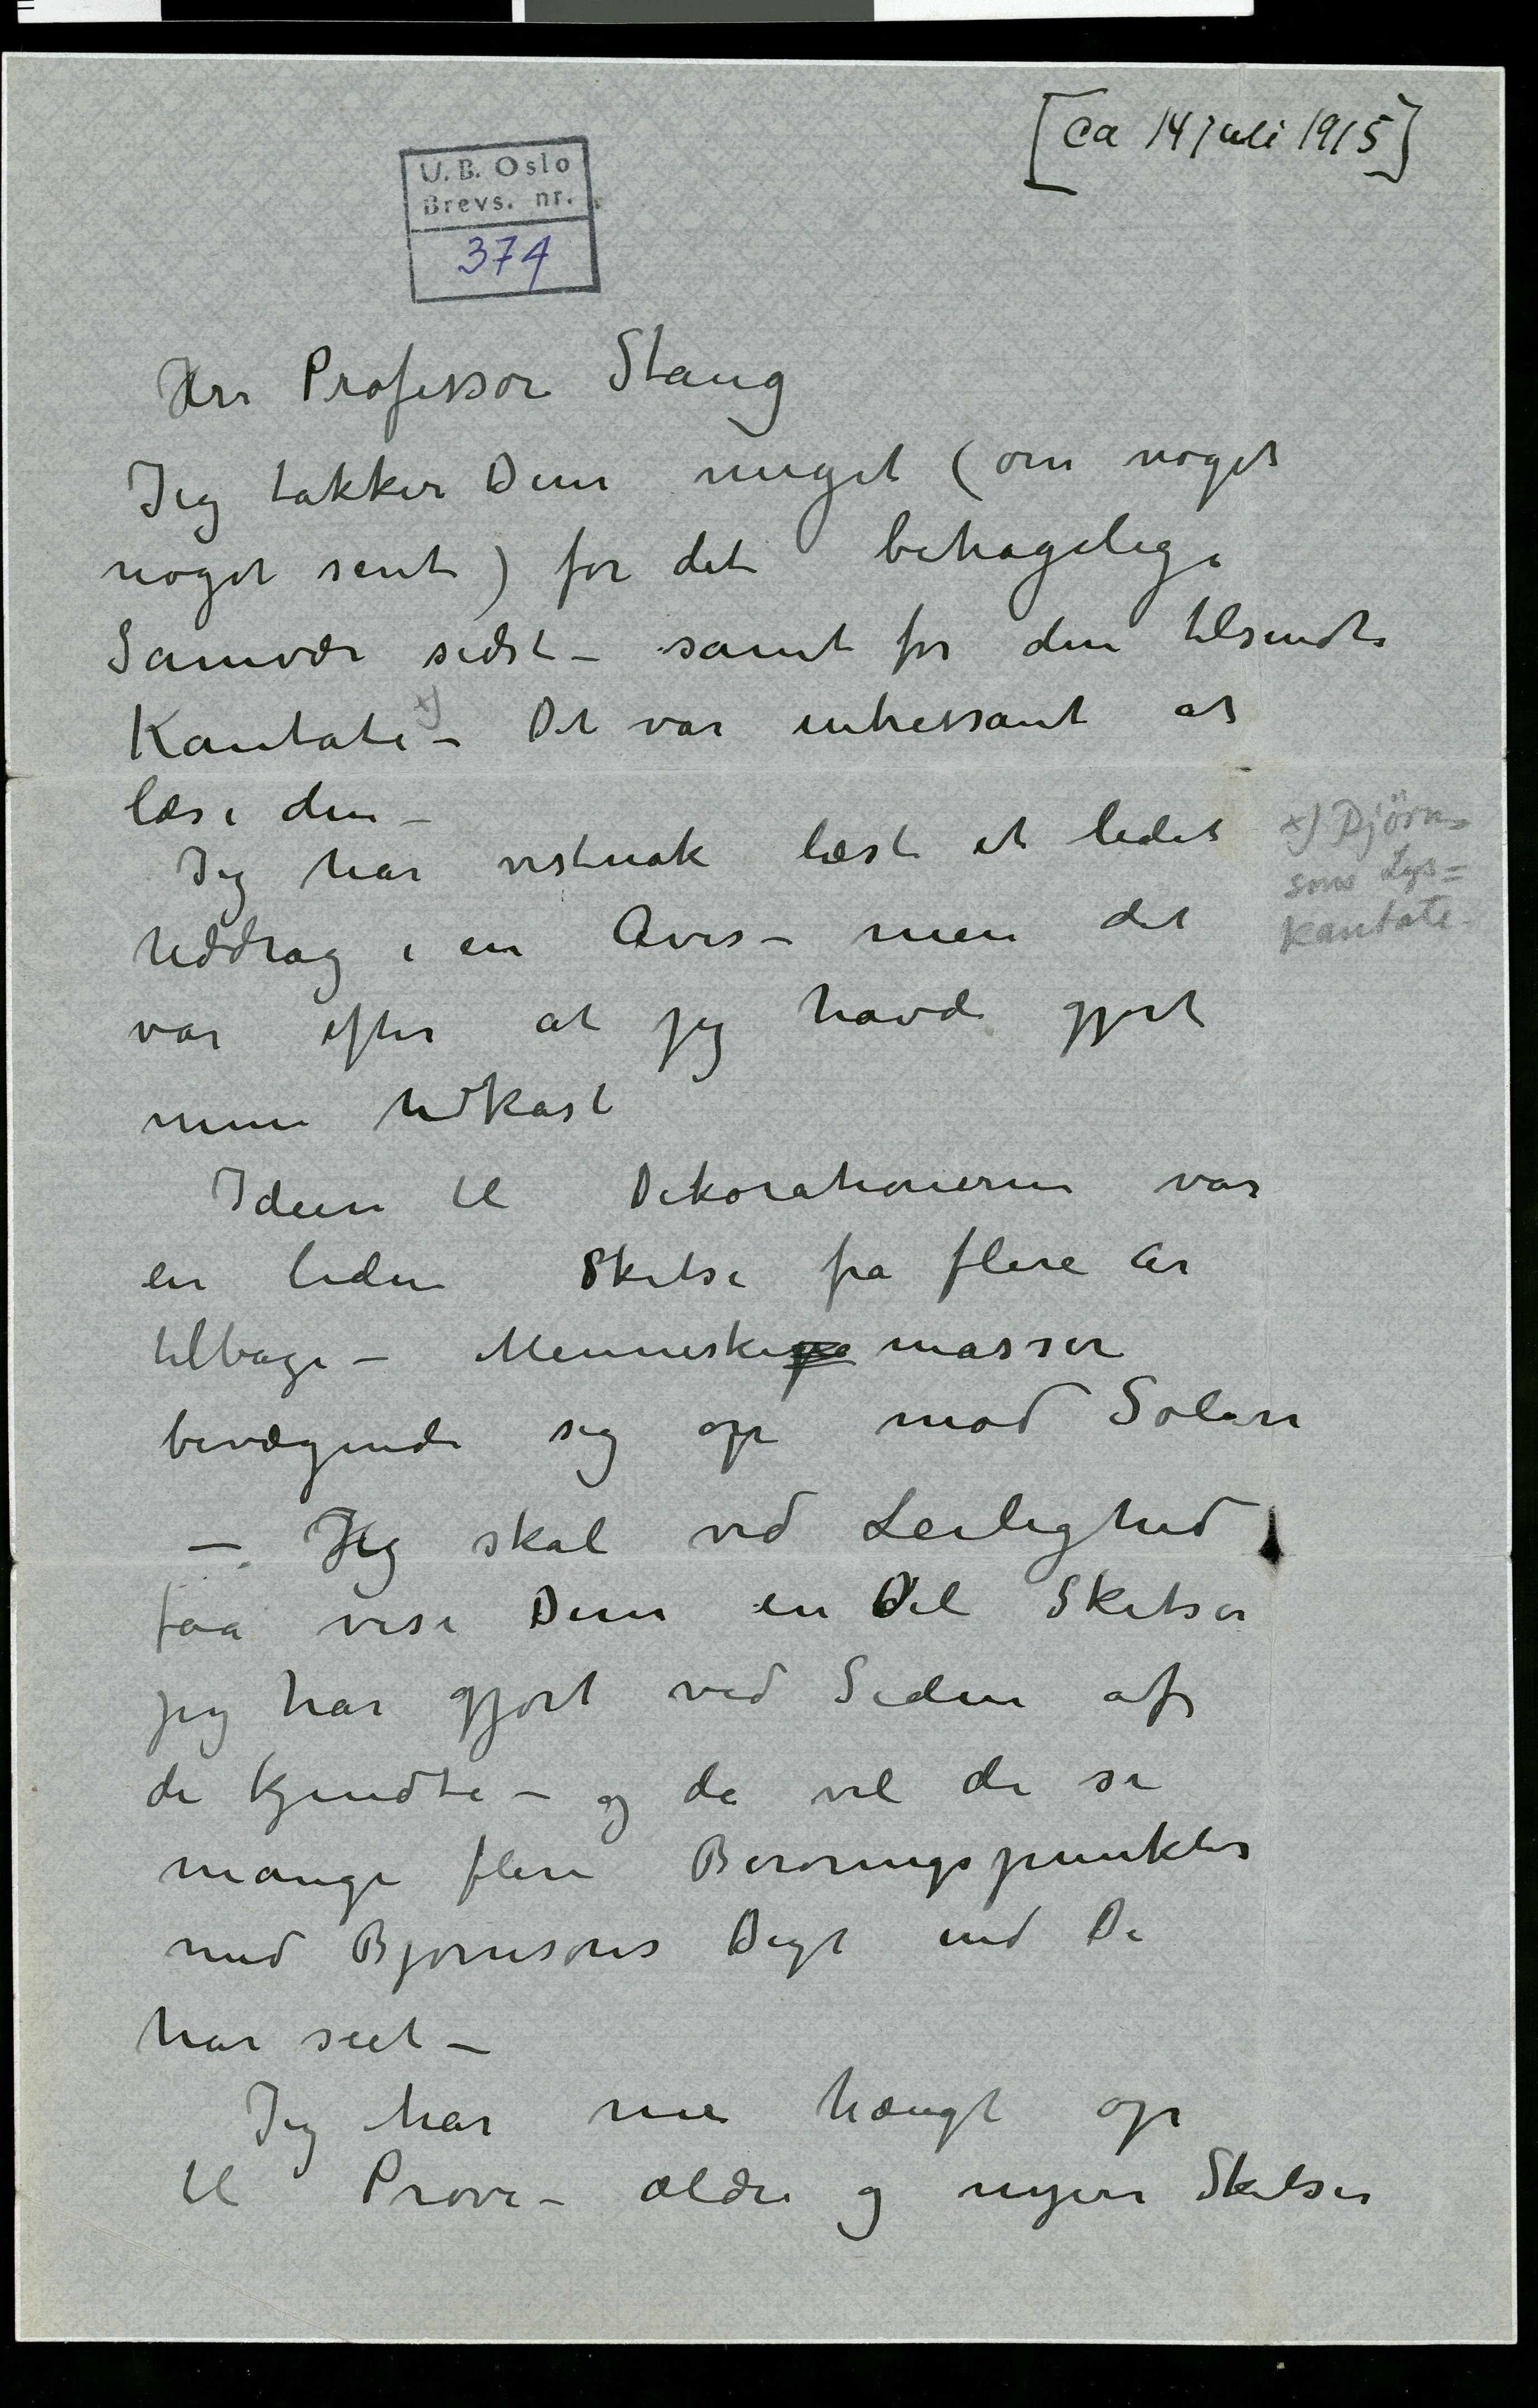 [ca 14 juli 1915]
U.B. Oslo
Brevs. nr.
374
Herr Professor Stang
Jeg takker Dem meget (om noget
noget sent) for det behagelige
Samvær sidst – samt for den tilsendte
Kantate x) – Det var intressant at
læse den –
Jeg har vistnok læst et lidet
Uddrag i en Avis – men det
var efter at jeg havde gjort
mine Udkast
x) Björn=
sons Lys=
kantate.
Ideen til Dekorationerne var
en liden Skitse fra flere Ar
tilbage – Menneskemasser
bevægende sig op mod Solen
– Jeg skal ved Leilighed
faa vise Dem en Del Skitser
jeg har gjort ved Siden af
de kjendte – og da vil de se
mange flere Berøringspunkter
med Bjørnsons Digt end De
har seet –
Jeg har nu hængt op
til Prøve – ældre og nyere Skitser